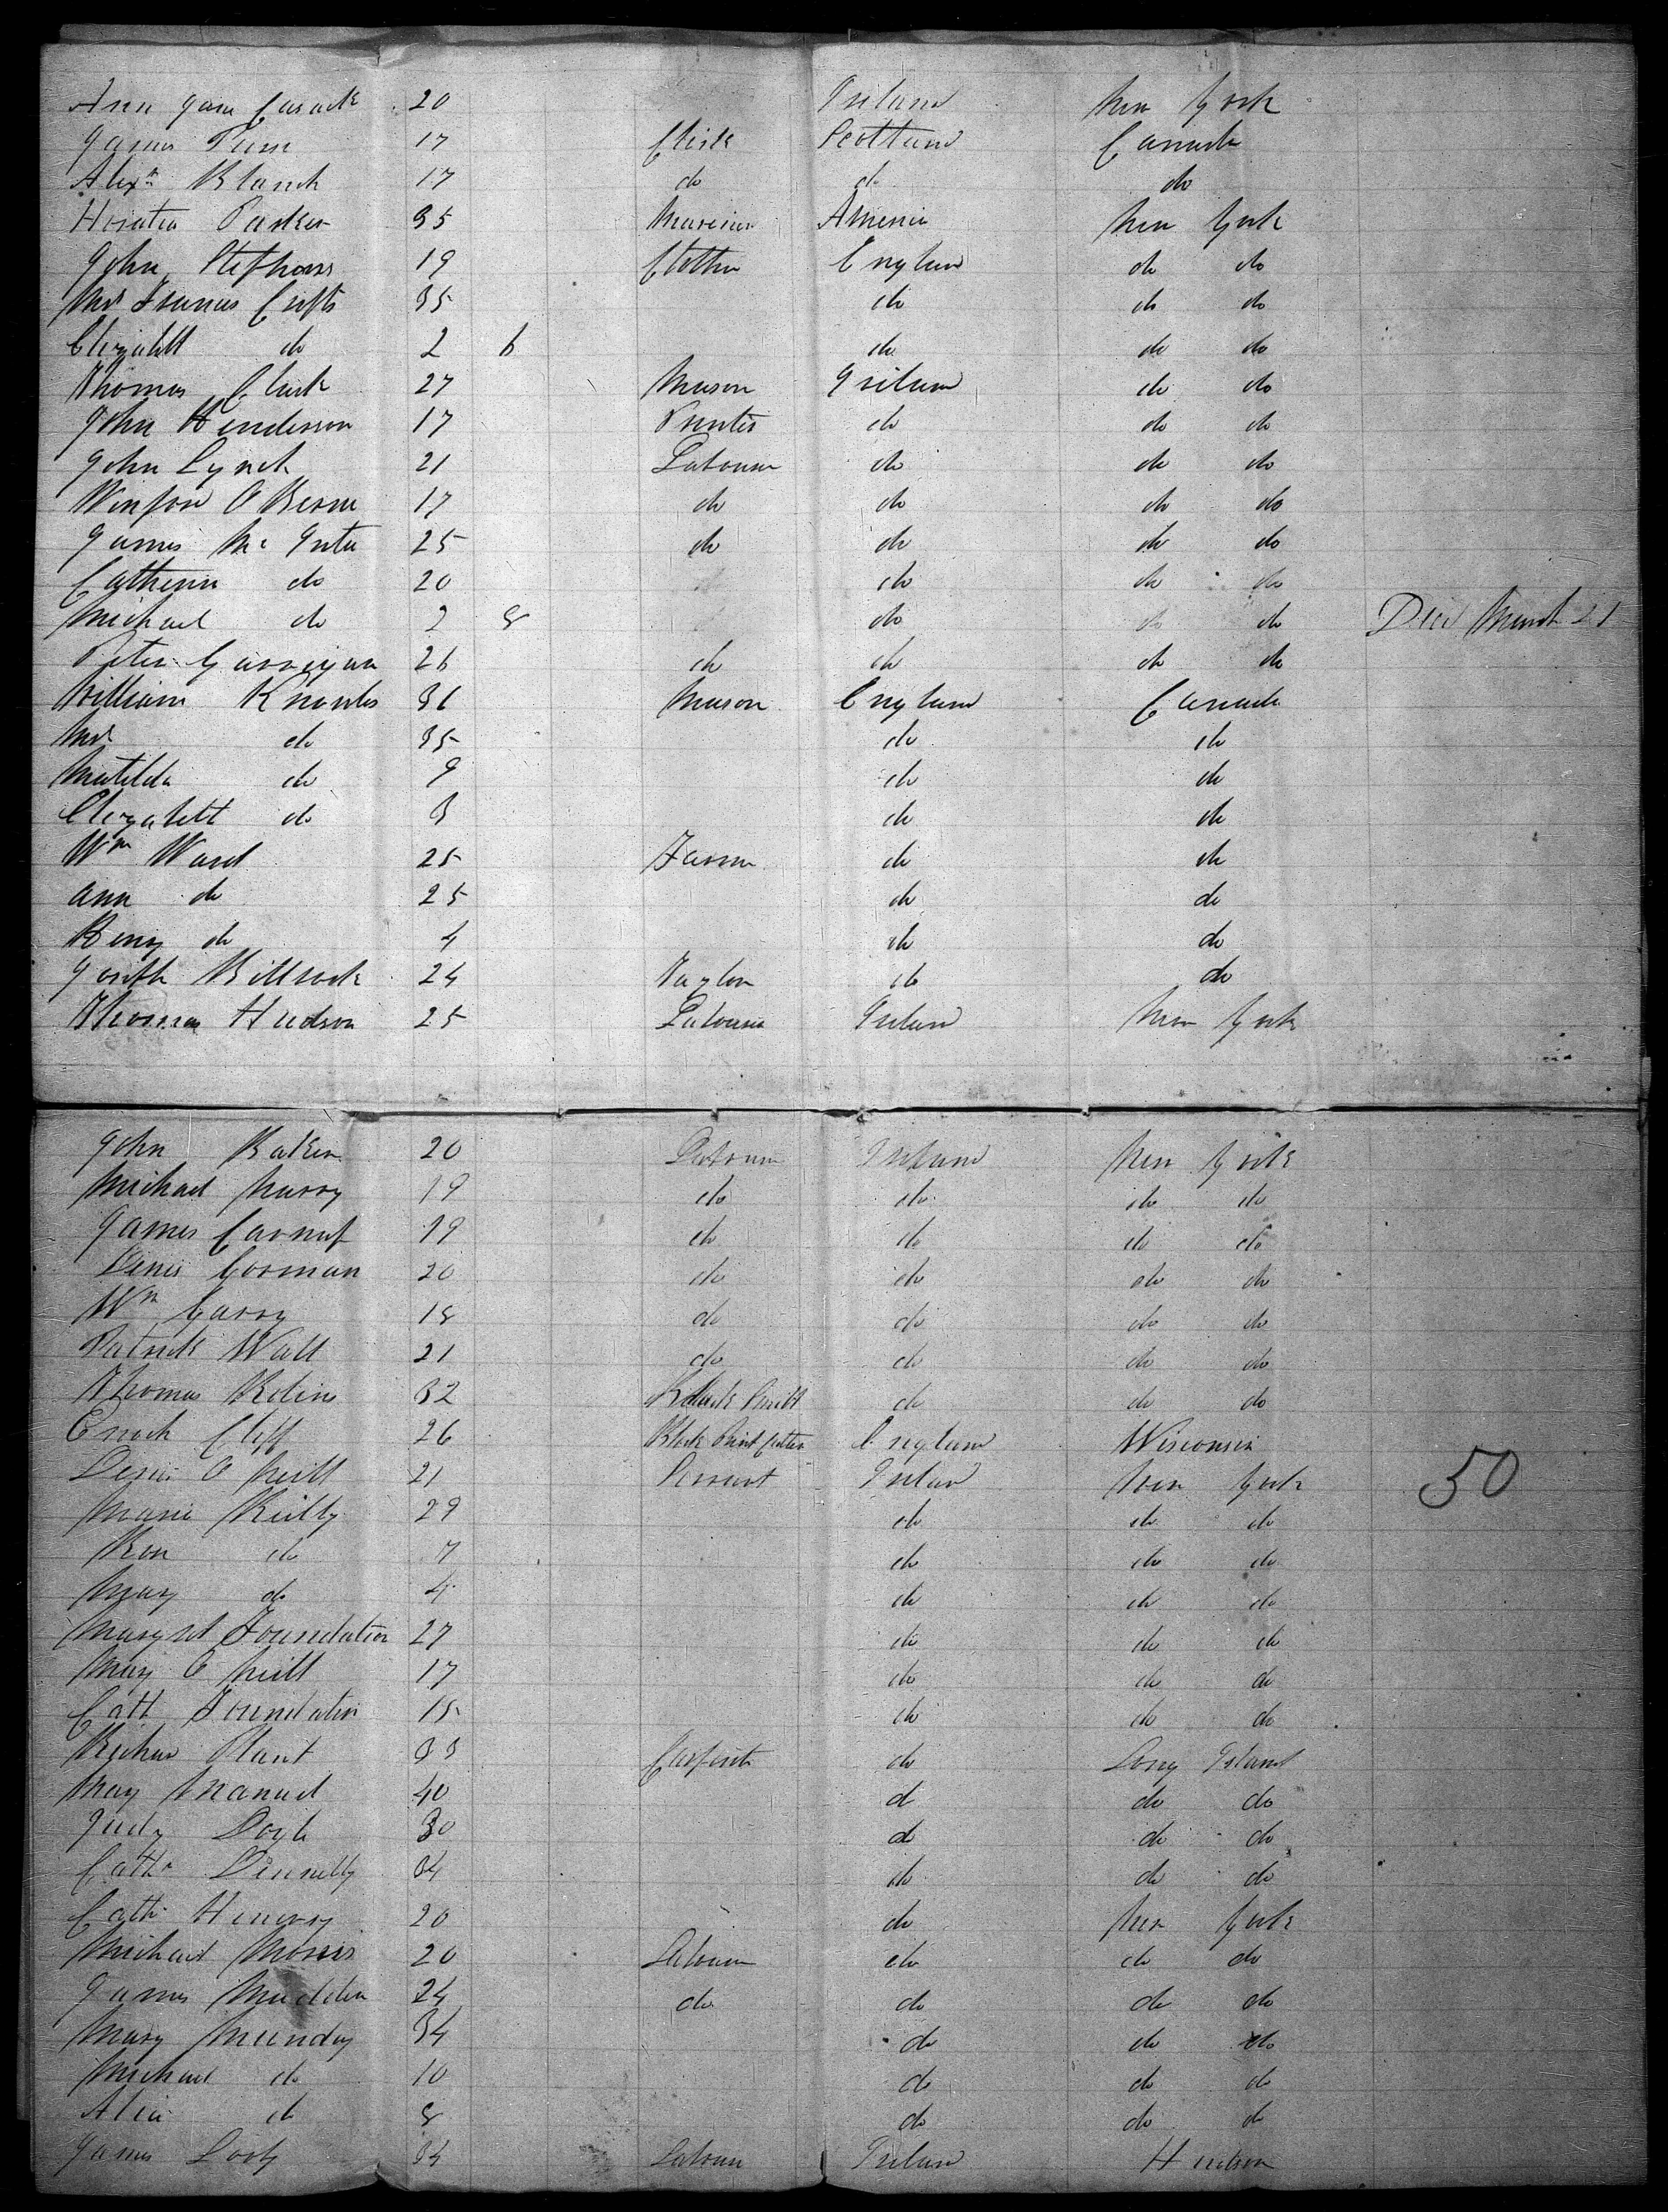 Ann Jane Cusack 20 Ireland New York
James 17 Clerk Scotland Canada
Alexr Blanch 17 do do do
Horatio Parker 35 Mariner America New York
John Stephens 19 Clothier England do do
Mrs Frances Crofts 35 do do do
Elizabeth do 2 6 do do do
Thomas Clark 27 Mason Ireland do do
John Henderson 17 Printer do do do
John Lynch 21 Labourer do do do
O Berne 17 do do do do
James Mc 25 do do do do
Catherine do 20 do do do
Michael do 2 8 do do do Died March 21
Peter Garrigan 26 do do do do
William Knowles 36 Mason England Canada
Mrs do 35 do do
Matilda do 9 do do
Elizabeth do 3 do do
Wm Ward 25 Farmer do do
Ann do 25 do do
Benj do 4 do do
Joseph 24 Taylor do do
Thomas Hudson 25 Labourer Ireland New York
John Baker 20 Labourer Ireland New York
Michael 19 do do do do
James 19 do do do do
Denis Gorman 20 do do do do
Wm Garry 18 do do do do
Patrick Wall 21 do do do do
Thomas 32 Black Smith do do do
Enoch Cliff 26 Block Print Cutter England Wisconsin
Denis O Neill 21 Servant Ireland New York 50
Maria Reilly 29 do do do
do 7 do do do
Mary do 4 do do do
Margret Foundation 27 do do do
Mary O Neill 17 do do do
Cath Foundation 15 do do do
Plant 33 Carpenter do Long Island
Mary Manuel 40 d do do
Judy Doyle 30 do do do
Cath Dennelly 34 do do do
Cath 20 do New York
Michael Morris 20 Labourer do do do
James Madden 24 do do do do
Mary Munday 34 do do do
Michael do 10 do do do
Alice do 8 do do do
James 34 Labourer Ireland Hudson